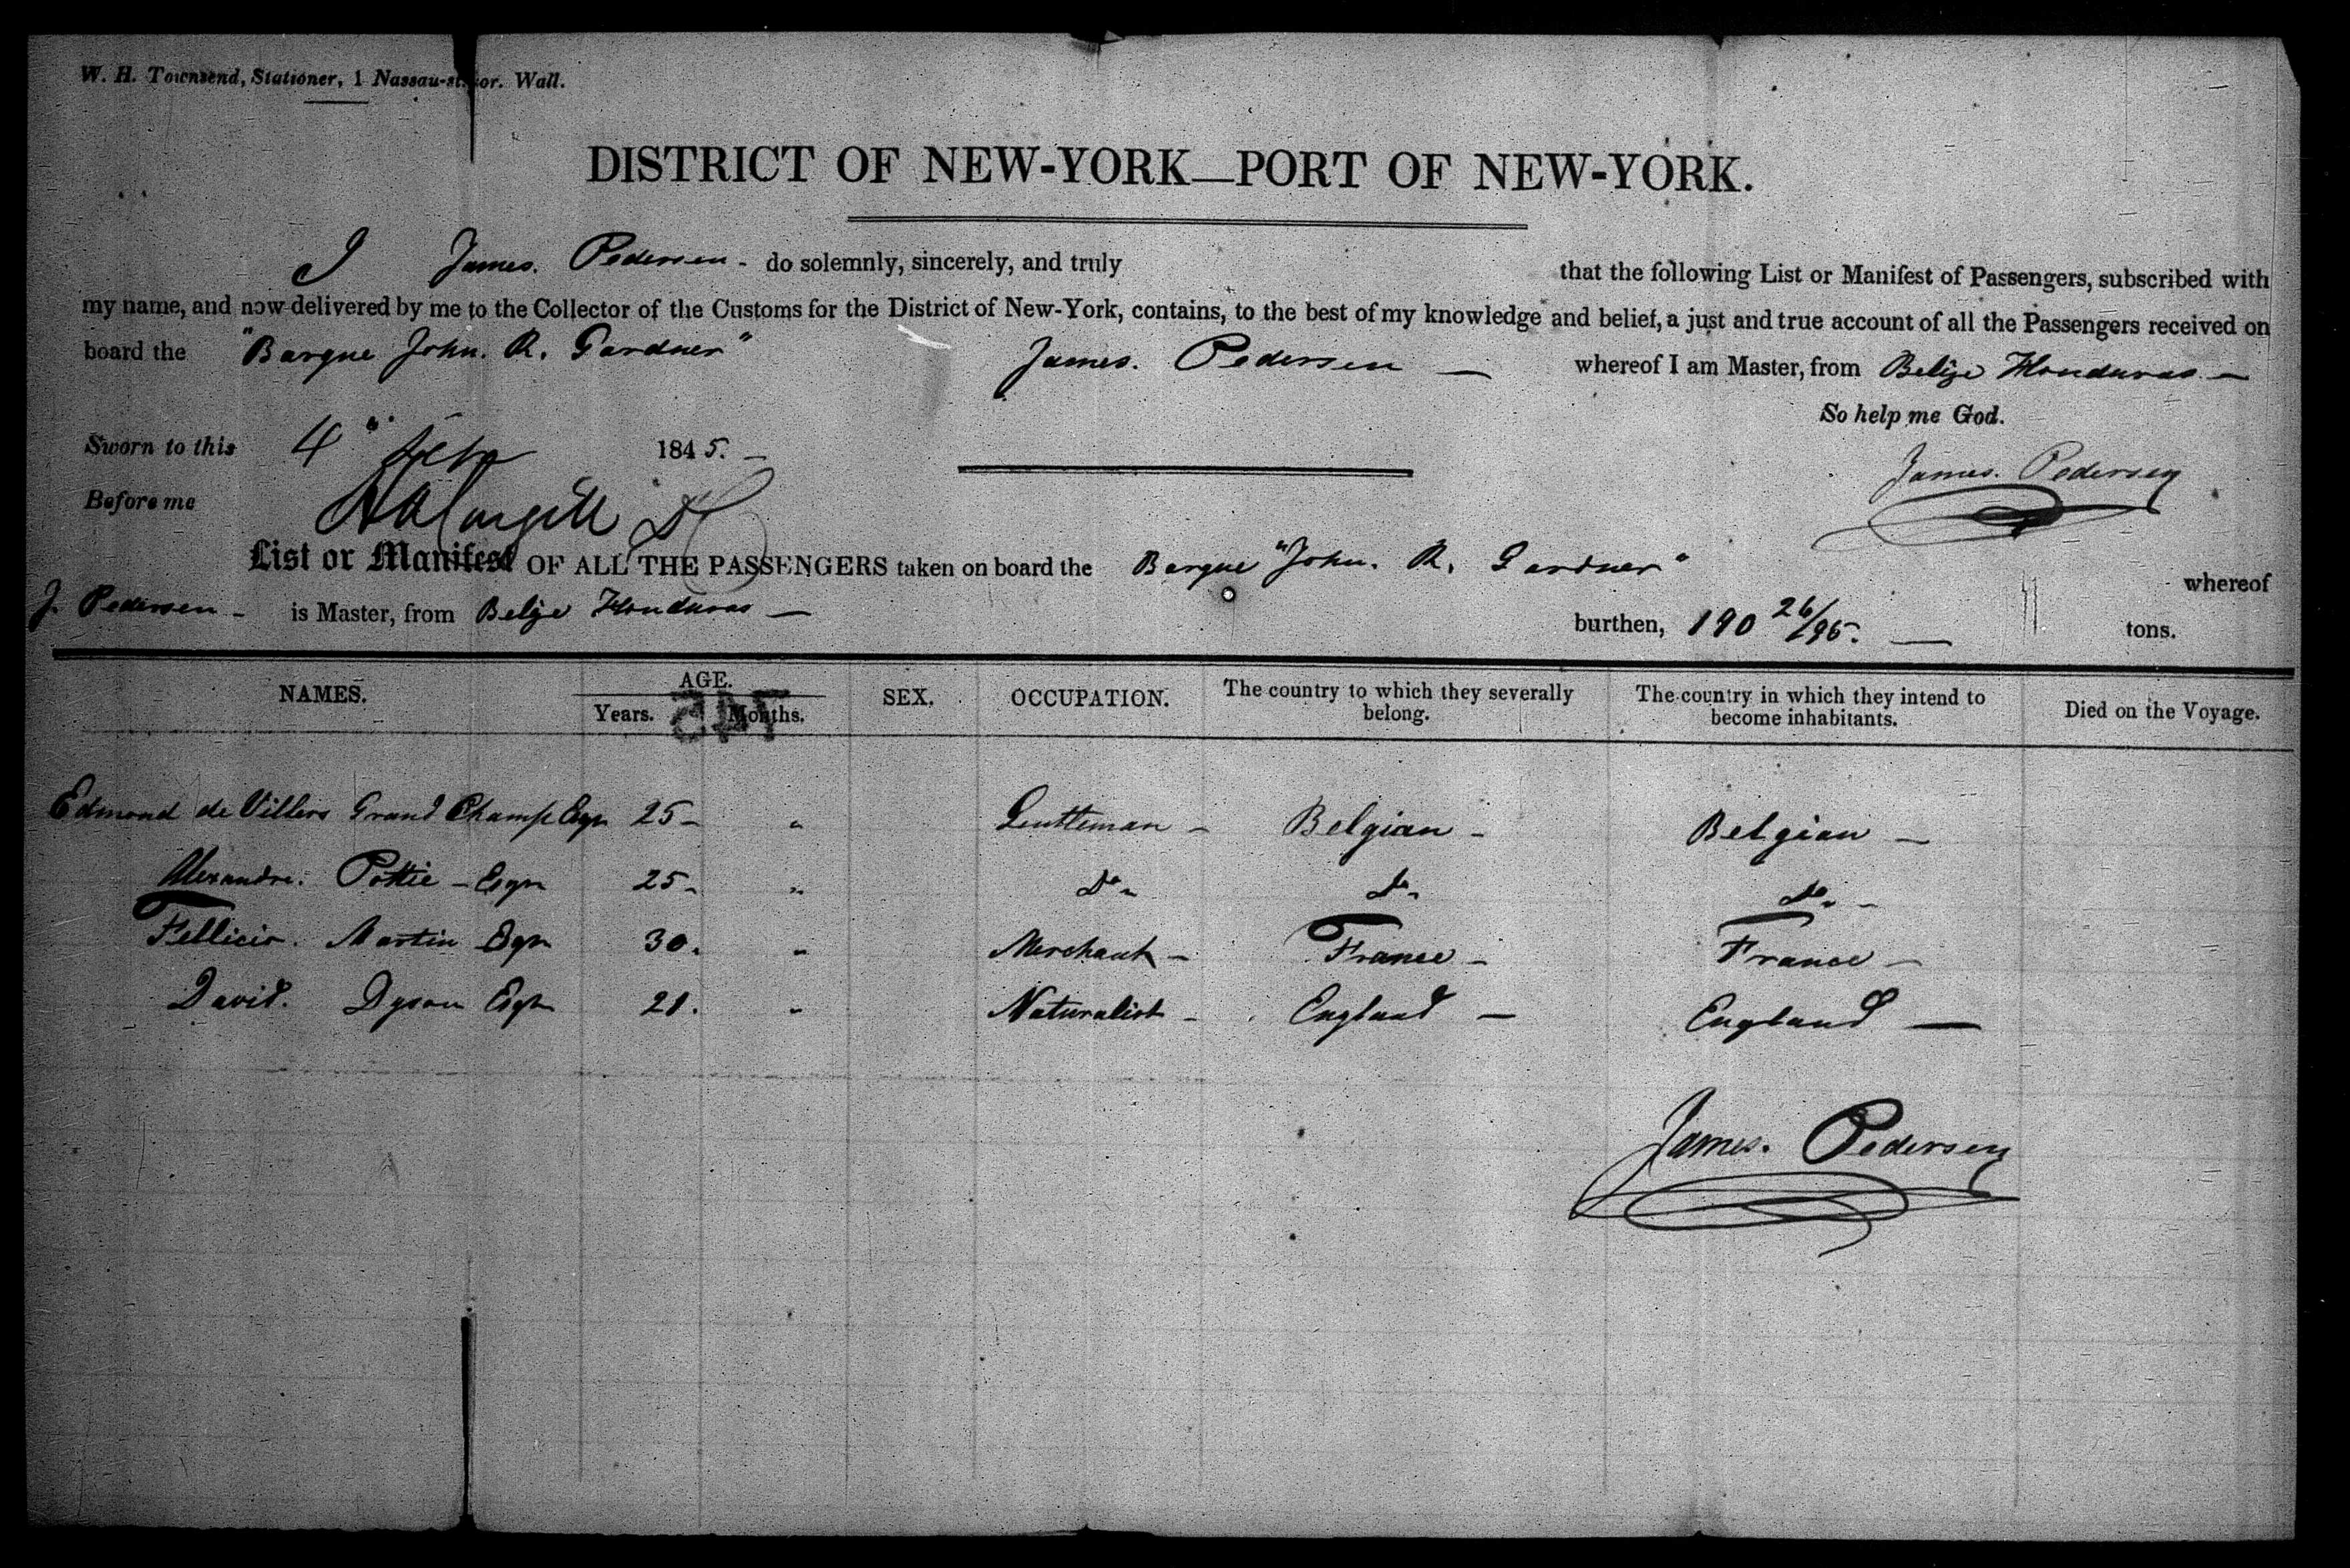 W. H. Townsend, Stationer, 1 Nassau-st. cor. Wall.
DISTRICT OF NEW-YORK—PORT OF NEW-YORK.
I James. Pedersen - do solemnly, sincerely, and truly that the following List or Manifest of Passengers, subscribed with
my name, and now delivered by me to the Collector of the Customs for the District of New-York, contains, to the best of my knowledge and belief, a just and true account of all the Passengers received on
board the "Barque John. R. Gardner" James. Pedersen — whereof I am Master, from Belize Honduras —
So help me God.
Sworn to this 4" 1845. —
James. Pedersen
Before me
List or Manifest OF ALL THE PASSENGERS taken on board the Barque "John. R. Gardner" whereof
J. Pedersen - is Master, from Belize Honduras — burthen, 190 26/95. — tons.
NAMES. AGE. SEX. OCCUPATION. The country to which they severally belong. The country in which they intend to become inhabitants. Died on the Voyage.
Years. Months.
145
Edmond de Villers Grand Champ Esqr 25 - " Gentleman - Belgian - Belgian —
Alexandre. Pottie - Esqr 25 - " Do - Do - Do -
Fellicir. Martin Esqr 30. " Merchant - France - France -
David. Dyson Esqr 21. " Naturalist - England — England —
James. Pedersen